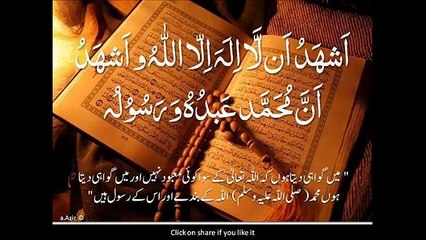 اَشھَدُ اَن لَّا اِلٰہَ اِلَّا اللہُ و اَشھَدُ
اَنَّ مُحَمَّد عَبدُہٗ وَ رَسُولُہ
" میں گواہی دیتا ہوں کہ اللہ تعالیٰ کے سوا کوئی معبود نہیں اور میں گواہی دیتا
ہوں محمد ( صلی اللہ علیہ وسلم ) اللہ کے بندے اور اس کے رسول ہیں "
a.Aziz ©
Click on share if you like it